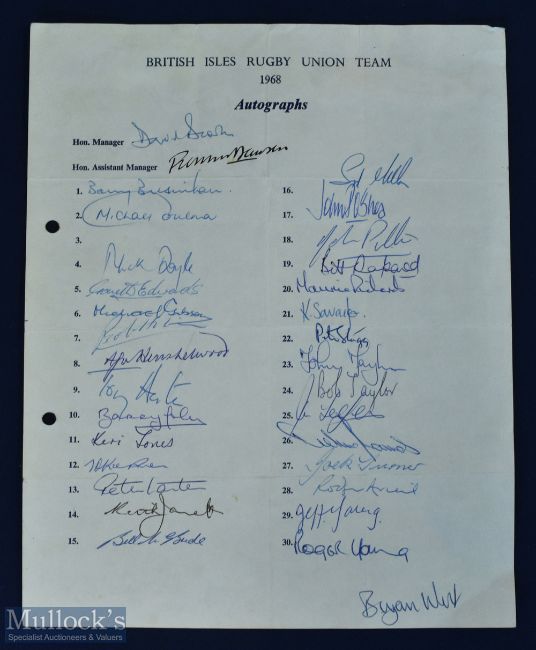 BRITISH ISLES RUGBY UNION TEAM
1968
Autographs
Hon. Manager David Brooks
Hon. Assistant Manager
1. Barry Bresnihan.
2. Michael
3.
4. Mick Doyle
5. Gareth Edwards
6. Michael Gibson
7.
8. Hinshelwood
9. Tony Horton
10. Barry John
11. Keri Jones
12.
13. Peter Larter
14. Keith Jarrett
15. Bill McBride
16. Syd Millar
17. John O'Shea
18. John Pullin
19. Bill Raybould
20. Maurice Richards
21. K Savage
22. Peter Stagg
23. John Taylor
24. Bob Taylor
25. J. Telfer
26.
27. Jock Turner
28. Rodger Arneil
29. Jeff Young.
30. Roger Young
Bryan West
Mullock's
Specialist Auctioneers & Valuers